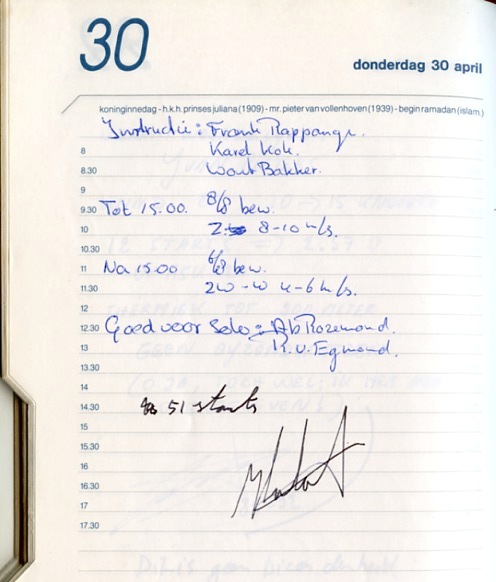 30
donderdag 30 april
koninginnedag - h.k.h. prinses juliana (1909) - mr. pieter van vollenhoven (1939) - begin ramadan (islam.)
Instructie: Frank Rappange.
8 Karel Kok.
8.30 Wout Bakker.
9
9.30 Tot 15.00. 8/8 bew.
10 Z. 8-10 m/s.
10.30
11 Na 15.00 6/8 bew.
11.30 ZW-W 4-6 m/s.
12
12.30 Goed voor Solo: Ab Rozemond.
13 R.v. Egmond.
13.30
14
14.30 51 starts
15
15.30
16
16.30
17
17.30